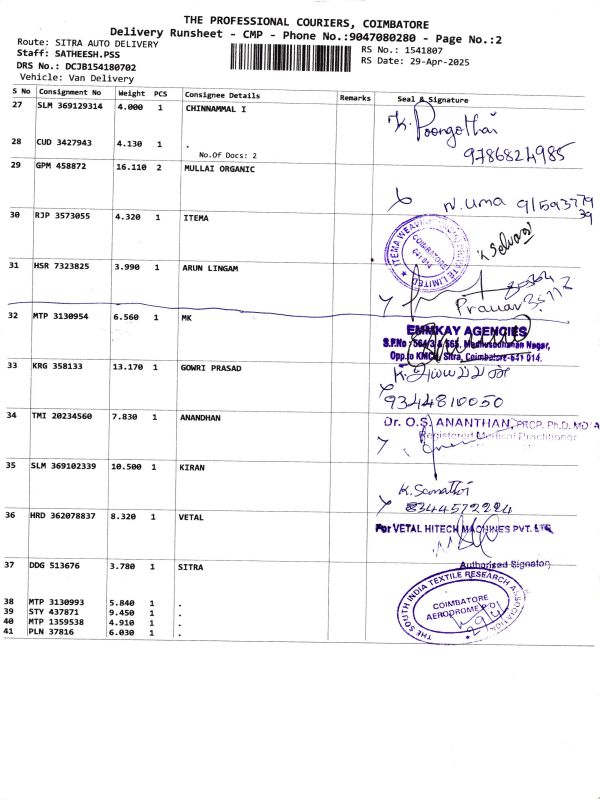 THE PROFESSIONAL COURIERS, COIMBATORE
Delivery Runsheet - CMP - Phone No.:9047080280 - Page No.:2
Route: SITRA AUTO DELIVERY
Staff: SATHEESH.PSS
DRS No.: DCJB154180702
Vehicle: Van Delivery
RS No.: 1541807
RS Date: 29-Apr-2025
S No Consignment No Weight PCS Consignee Details Remarks Seal & Signature
27 SLM 369129314 4.000 1 CHINNAMMAL I
K. Poongothai
9786824985
28 CUD 3427943 4.130 1 .
No.Of Docs: 2
29 GPM 458872 16.110 2 MULLAI ORGANIC
N. Uma
30 RJP 3573055 4.320 1 ITEMA
COIMBATORE
641 014
K Selvam
31 HSR 7323825 3.990 1 ARUN LINGAM
32 MTP 3130954 6.560 1 MK
EMMKAY AGENCIES
S.F.No : 564/3 & 565, Madhusudhanan Nagar,
Opp.to KMCH, Sitra, Coimbatore-641 014.
33 KRG 358133 13.170 1 GOWRI PRASAD
9344810050
34 TMI 20234560 7.830 1 ANANDHAN
Dr. O.S. ANANTHAN, PRCP. Ph.D. MD/A
Registered Medical Practitioner
35 SLM 369102339 10.500 1 KIRAN
8344572224
36 HRD 362078837 8.320 1 VETAL
For VETAL HITECH MACHINES PVT. LTD
Authorised Signatory
37 DDG 513676 3.780 1 SITRA
THE SOUTH INDIA TEXTILE RESEARCH ASSOCIATION
COIMBATORE
AERODROME P.O
38 MTP 3130993 5.840 1 .
39 STY 437871 9.450 1 .
40 MTP 1359538 4.910 1 .
41 PLN 37816 6.030 1 .